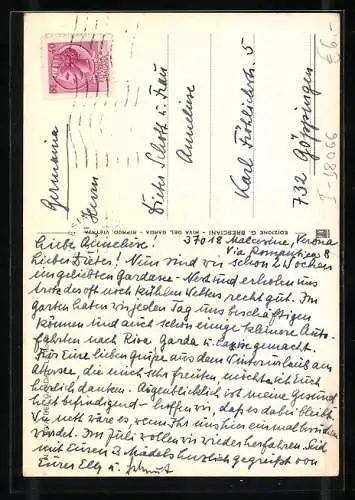 Germania
Herrn
Dieter Schott u. Frau
Anneliese
Karl Fröhlichstr. 5
732 Göppingen
I-58066
E6.-
EDIZIONE G. BRESCIANI - RIVA DEL GARDA - RIPROD. VIETATA
37018 Malcesine, Verona
Via Romantica 8
Liebe Anneliese.
Lieber Dieter! Nun sind wir schon 2 Wochen
im geliebten Gardasee-Nest und erholen uns
trotz des oft noch kühlen Wetters recht gut. Im
Garten haben wir jeden Tag uns beschäftigen
können und auch schon einige kleinere Auto-
fahrten nach Riva, Garda u. Lazise gemacht.
Für Eure lieben Grüße aus dem Winterurlaub am
die mich sehr freuten, möchte ich Euch
herzlich danken. Augenblicklich ist meine Gesund-
heit befriedigend - hoffen wir, daß es dabei bleibt.
Wie nett wäre es wenn Ihr uns hier einmal besuchen
würdet. Im Juli wollen wir wieder herfahren. Seid
mit Euren 3 Mädels herzlich gegrüßt von
Eurer Elly u. Helmut